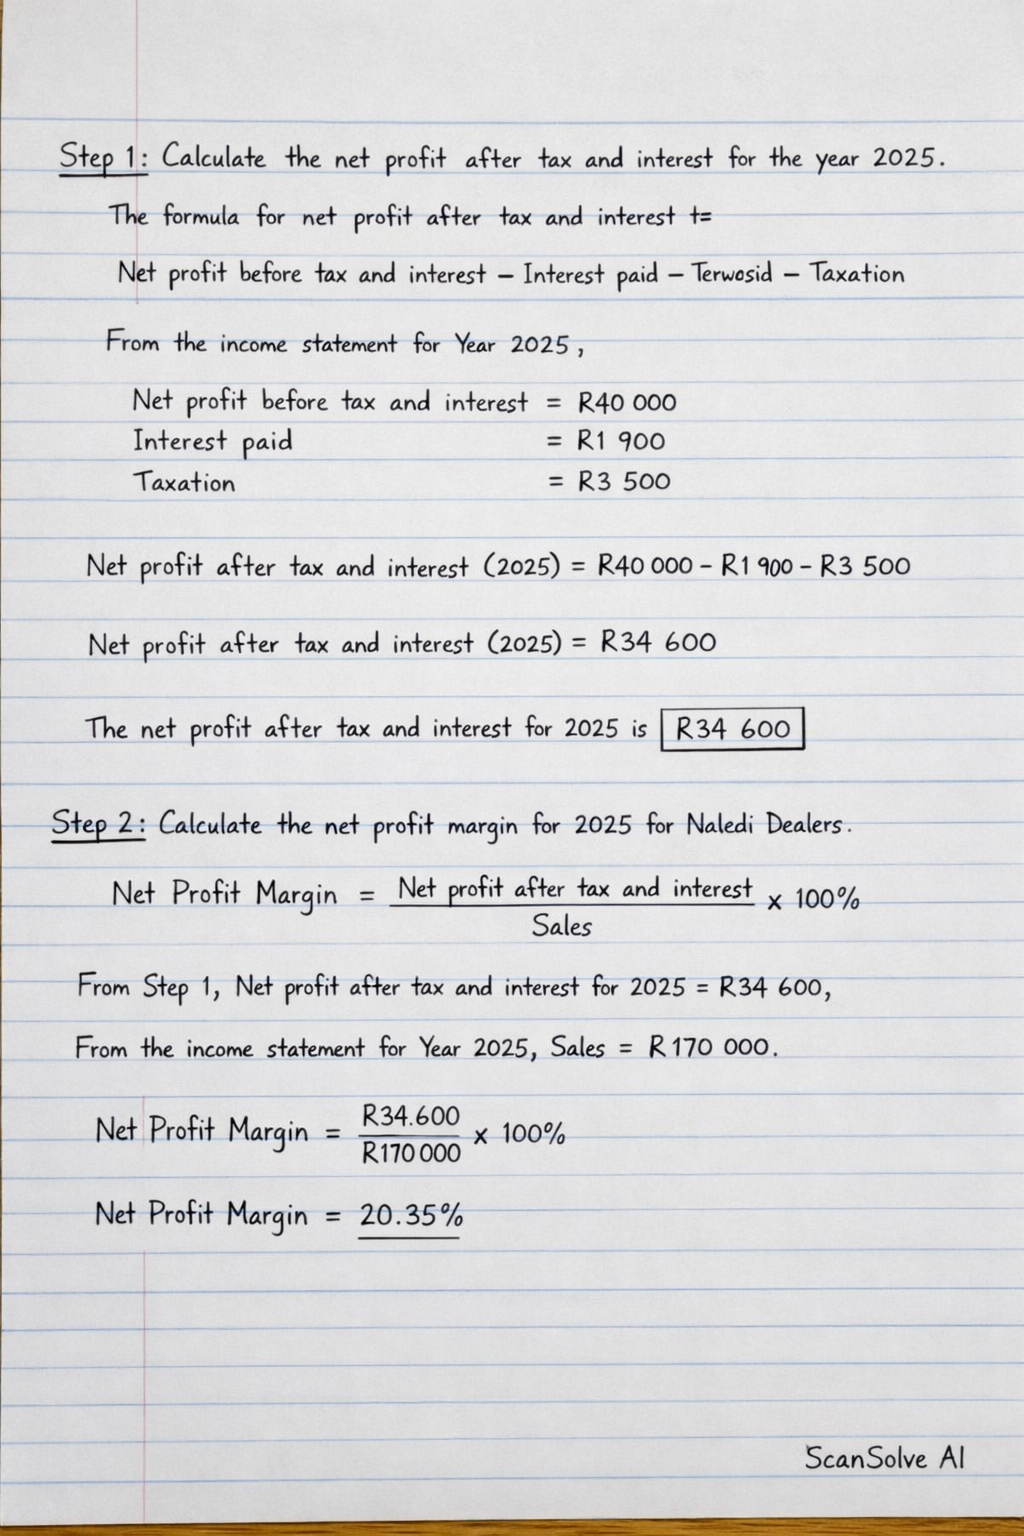 Step 1: Calculate the net profit after tax and interest for the year 2025.
The formula for net profit after tax and interest t=
Net profit before tax and interest – Interest paid – Terwosid – Taxation
From the income statement for Year 2025,
Net profit before tax and interest = R40 000
Interest paid = R1 900
Taxation = R3 500
Net profit after tax and interest (2025) = R40 000 – R1 900 – R3 500
Net profit after tax and interest (2025) = R34 600
The net profit after tax and interest for 2025 is R34 600
Step 2: Calculate the net profit margin for 2025 for Naledi Dealers.
Net Profit Margin = Net profit after tax and interest / Sales x 100%
From Step 1, Net profit after tax and interest for 2025 = R34 600,
From the income statement for Year 2025, Sales = R170 000.
Net Profit Margin = R34.600 / R170 000 x 100%
Net Profit Margin = 20.35%
ScanSolve AI